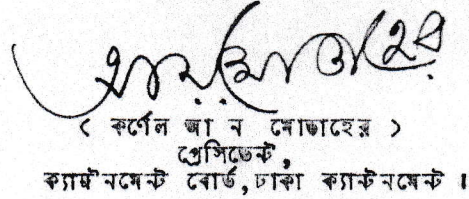 ( কর্ণেল আ ন মোতাহের )
প্রেসিডেন্ট,
ক্যান্টনমেন্ট বোর্ড, ঢাকা ক্যান্টনমেন্ট ।